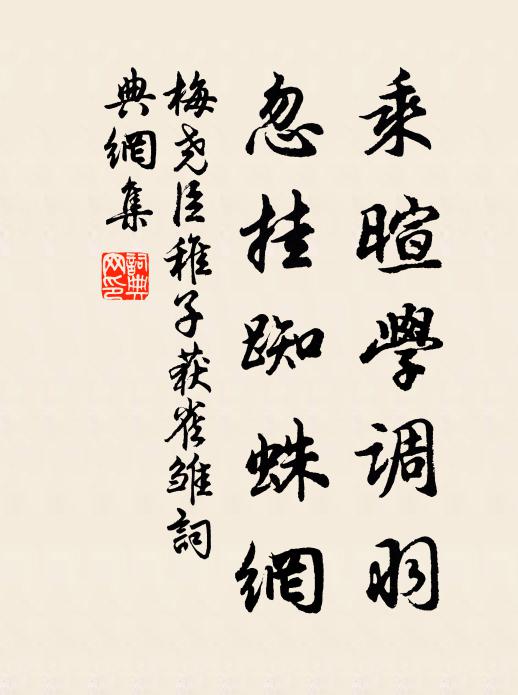 乘暄學调羽
忽挂踟蛛網
梅尧臣稚子获雀雏詞
典網集
詞典網印